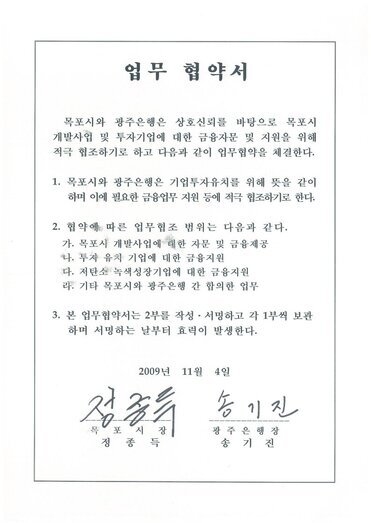 업무 협약서
목포시와 광주은행은 상호신뢰를 바탕으로 목포시
개발사업 및 투자기업에 대한 금융자문 및 지원을 위해
적극 협조하기로 하고 다음과 같이 업무협약을 체결한다.
1. 목포시와 광주은행은 기업투자유치를 위해 뜻을 같이
하며 이에 필요한 금융업무 지원 등에 적극 협조하기로 한다.
2. 협약에 따른 업무협조 범위는 다음과 같다.
가. 목포시 개발사업에 대한 자문 및 금융제공
나. 투자 유치 기업에 대한 금융지원
다. 저탄소 녹색성장기업에 대한 금융지원
라. 기타 목포시와 광주은행 간 합의한 업무
3. 본 업무협약서는 2부를 작성·서명하고 각 1부씩 보관
하며 서명하는 날부터 효력이 발생한다.
2009년 11월 4일
정종득 송기진
목포시장 광주은행장
정종득 송기진